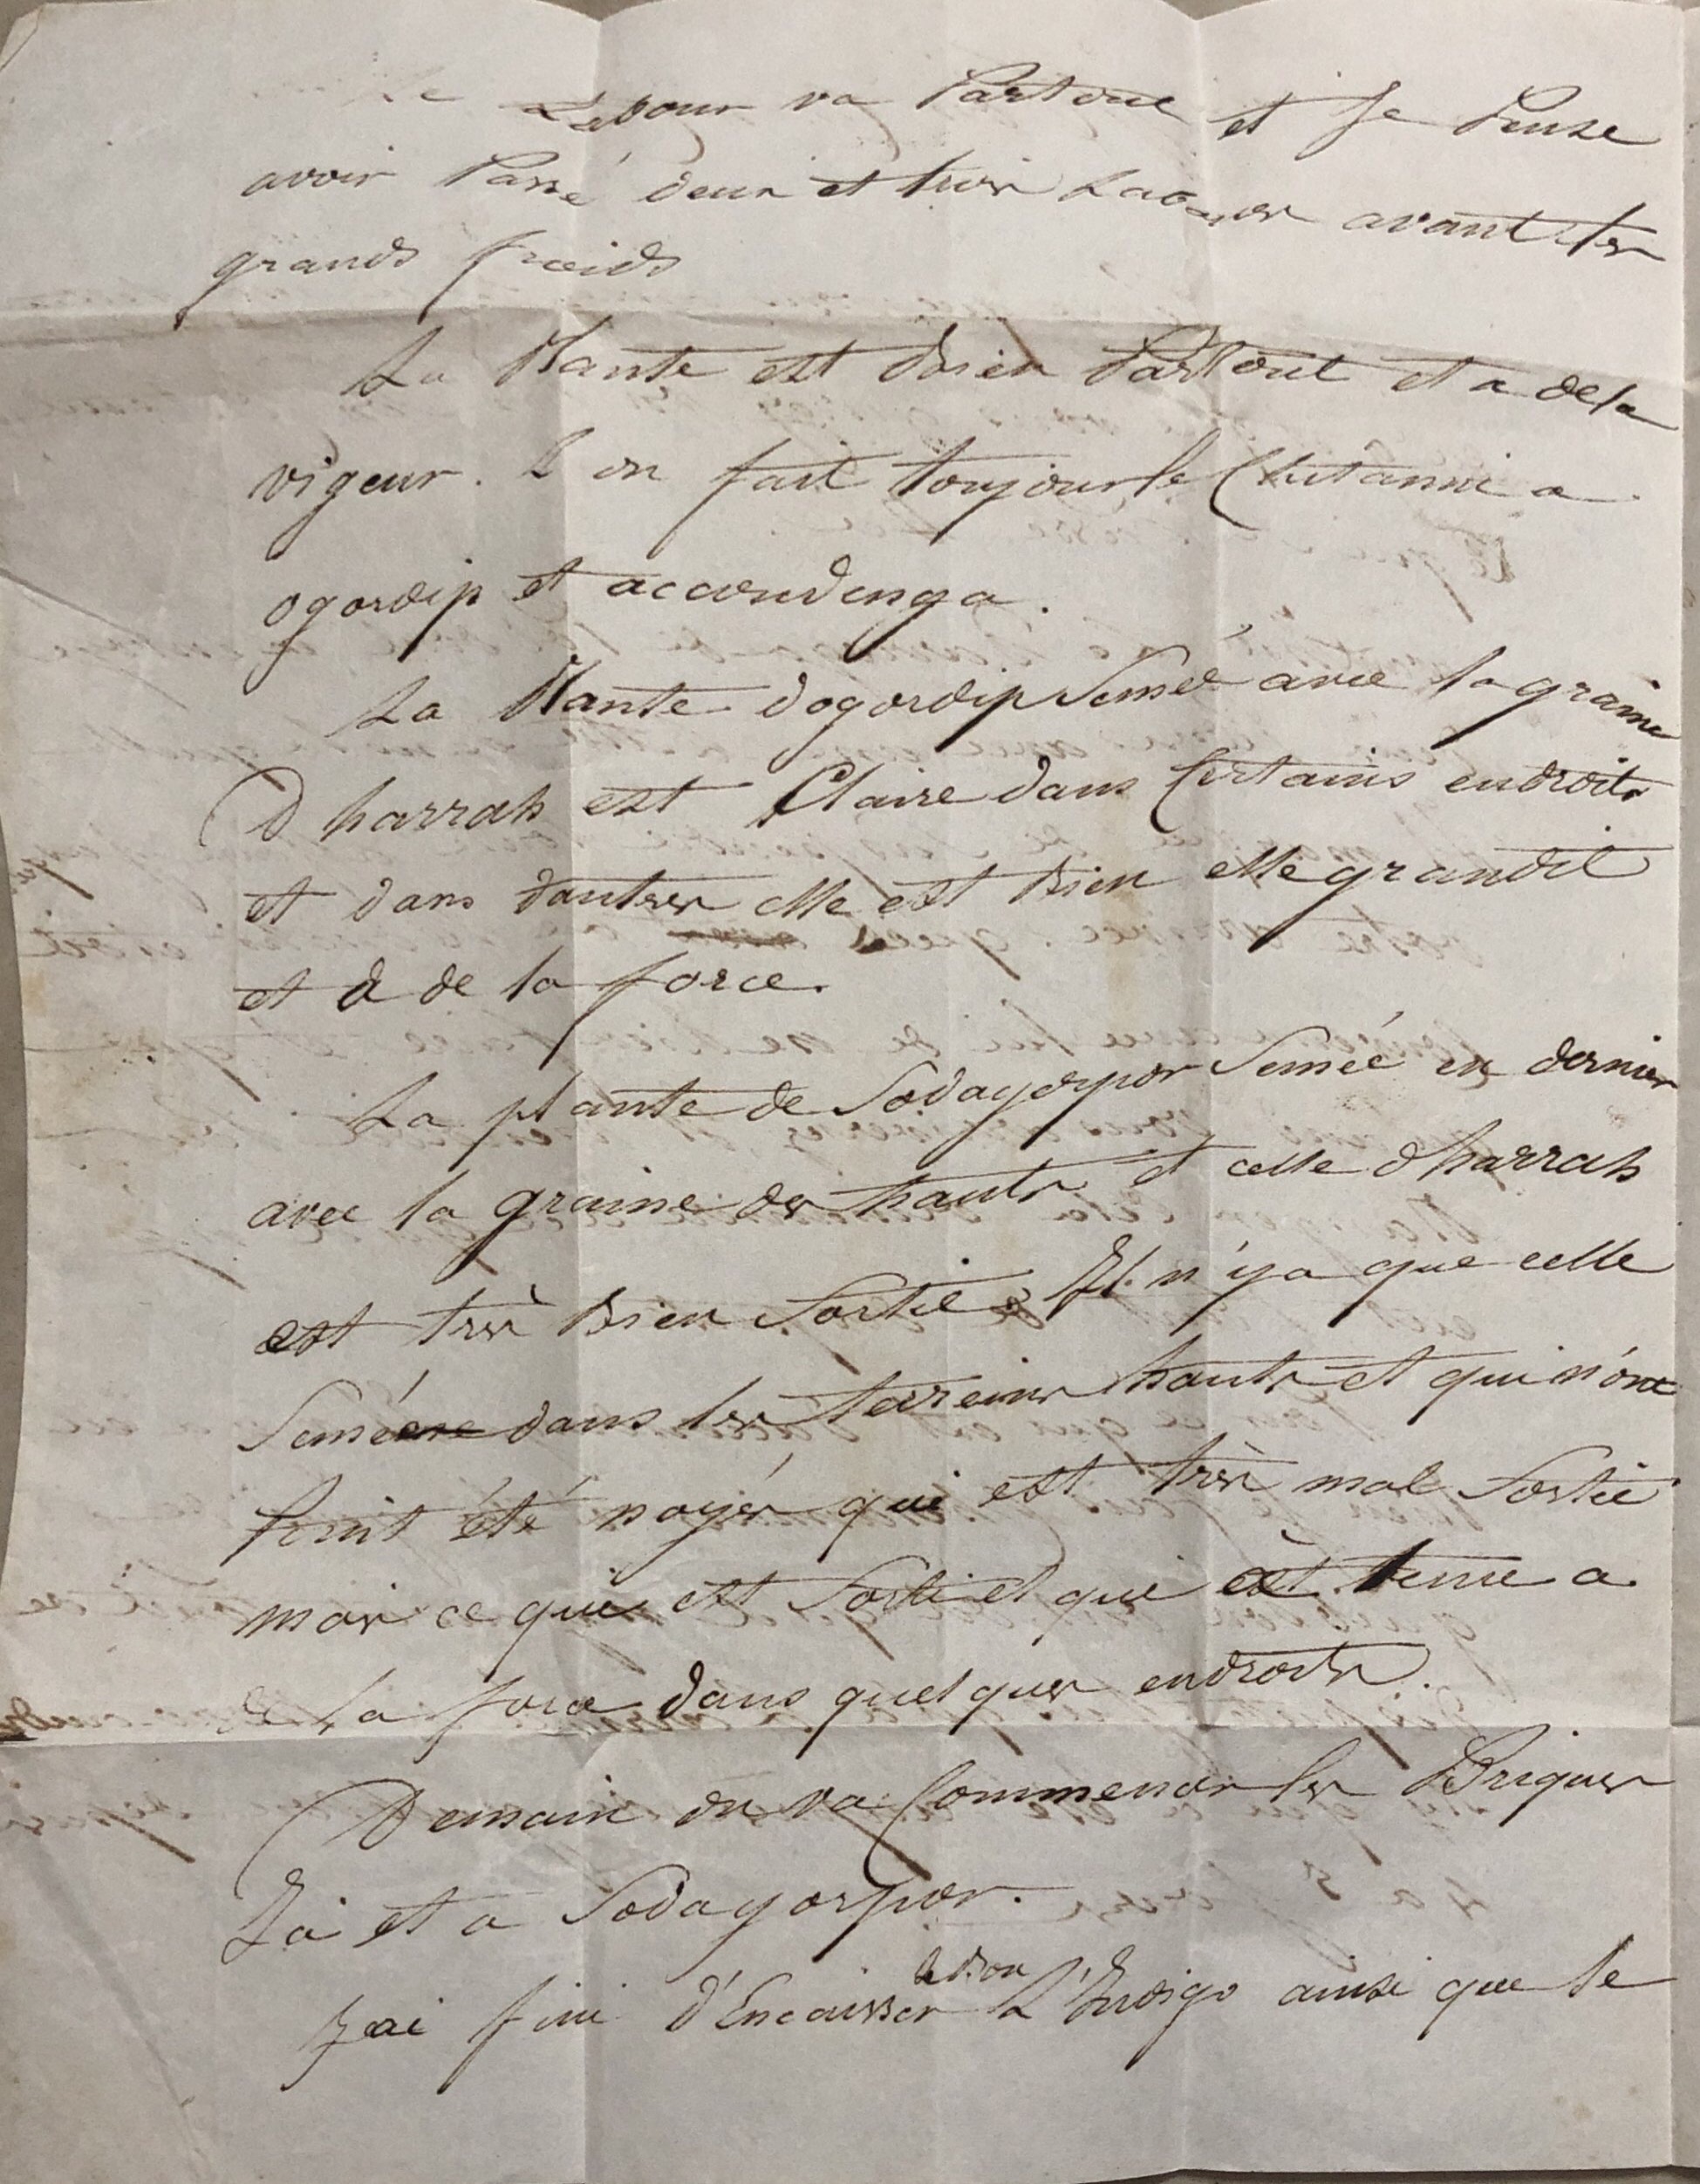 Labour va Partout et Je Pense
avoir Passé deux et trois Labours avant les
grands froids
La Plante est Bien Partout et a de la
vigeur. L'on fait toujours le Chitanni a
ogordip et accoudenga.
La Plante dogordip Semée avec la graine
D harrah est Claire dans Certains endroits
et dans dautres elle est Bien elle grandit
et a de la force.
La plante de Sodagorpor Semée en dernier
avec la graine des hauts et celle d harrah
est très Bien Sortie. Il n'y a que celle
Semée dans les terreins hauts et qui n'ont
Point été noyés qui est très mal Sortie
mais ce qui est Sorti et qui est tenu a
de la force dans quelques endroits.
Demain on va Commencer les Briques
Ici et a Sodagorpor.
le Bon
J'ai fini d'Encaisser L'Indigo ainsi que le